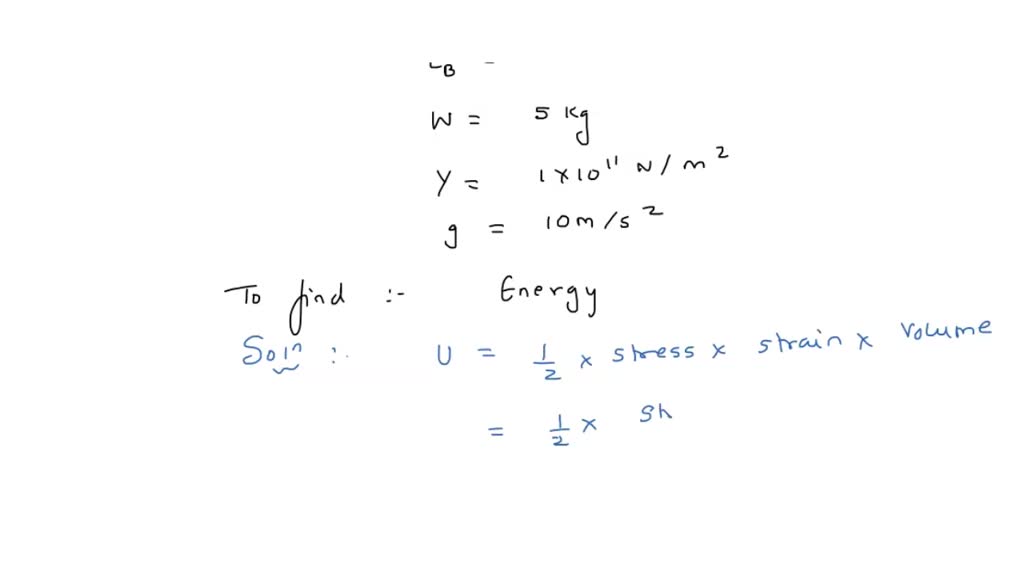 B -
W = 5 Kg
Y = 1 x 10¹¹ N/m²
g = 10 m/s²
To find :- Energy
Soln :- U = 1/2 x stress x strain x volume
= 1/2 x